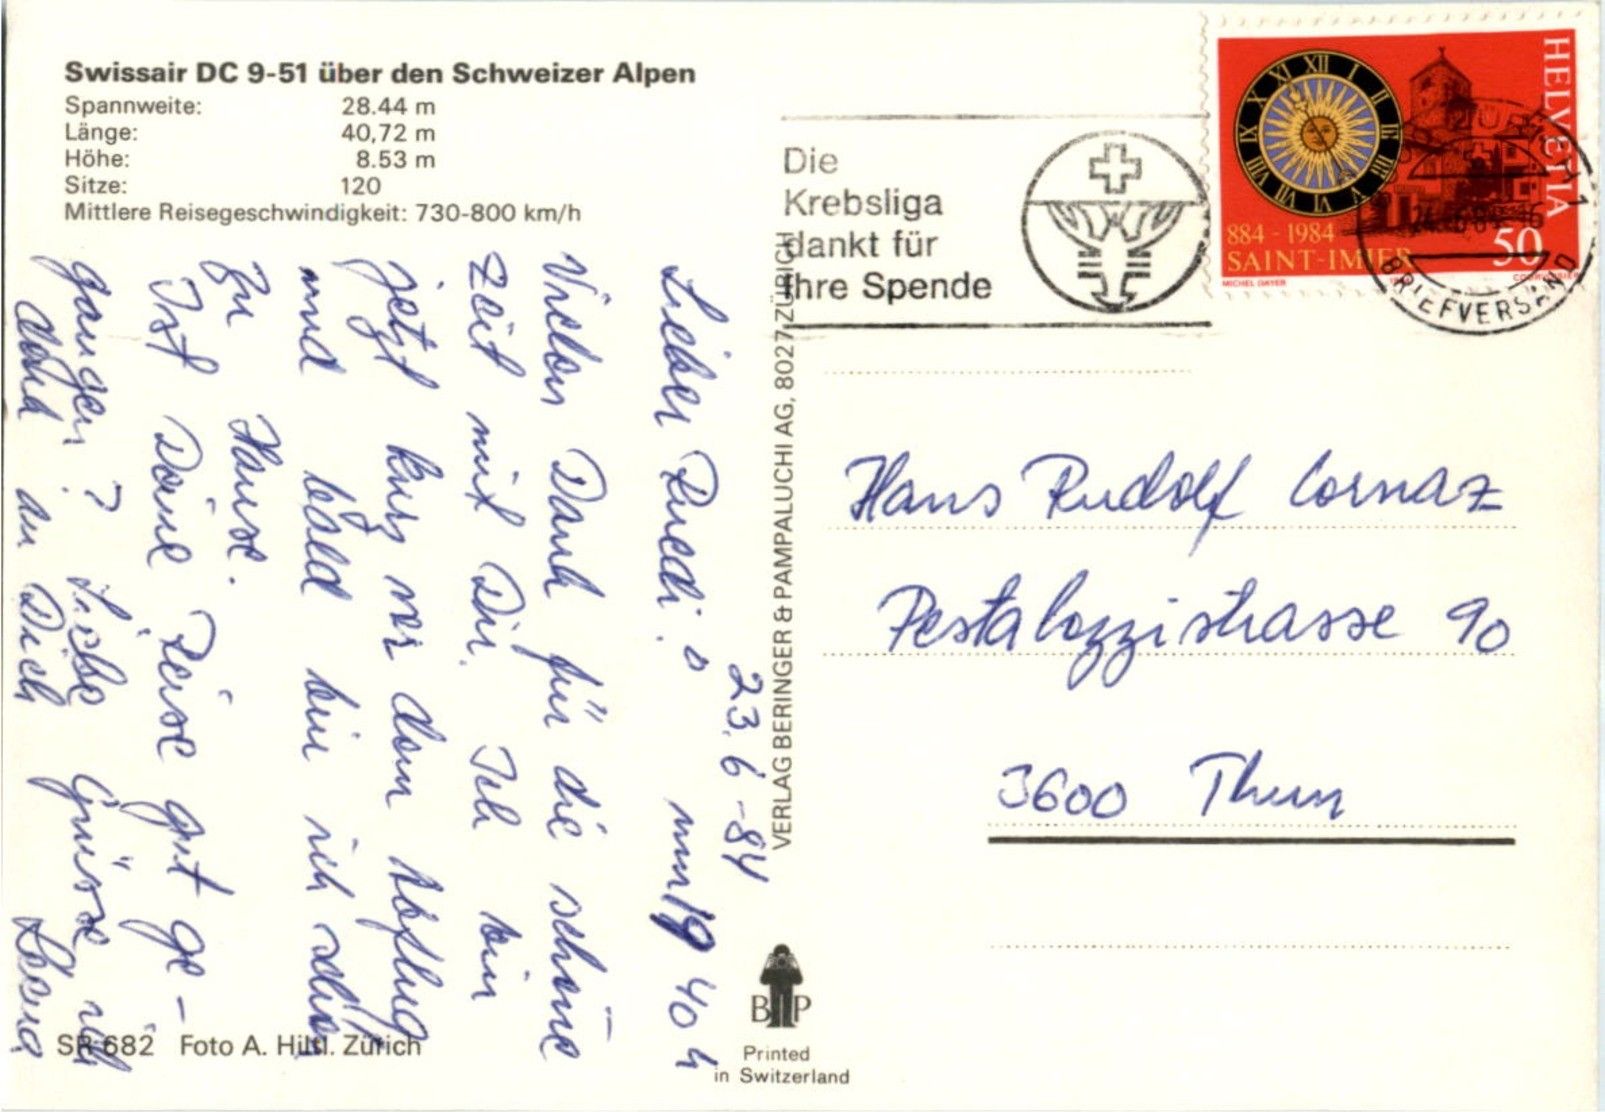 Swissair DC 9-51 über den Schweizer Alpen
Spannweite: 28.44 m
Länge: 40,72 m
Höhe: 8.53 m
Sitze: 120
Mittlere Reisegeschwindigkeit: 730-800 km/h
23.6-84
Lieber Ruedi! um 19 40 h
Vielen Dank für die schöne
Zeit mit Dir. Ich bin
jetzt kurz vor dem Abflug
und bald bin ich schon
zu Hause.
Ist Deine Reise gut ge-
gangen? Liebe Grüsse ich
denk an Dich
SR 682 Foto A. Hiltl. Zürich
VERLAG BERINGER & PAMPALUCHI AG, 8027 ZÜRICH
B P
Printed
in Switzerland
Die
Krebsliga
dankt für
Ihre Spende
HELVETIA
XII I II III IIII V VI VII VIII IX X XI
884-1984
SAINT-IMIER
50
MICHEL GAYER
COURVOISIER
BRIEFVERSAND
Hans Rudolf Cornaz
Pestalozzistrasse 90
3600 Thun